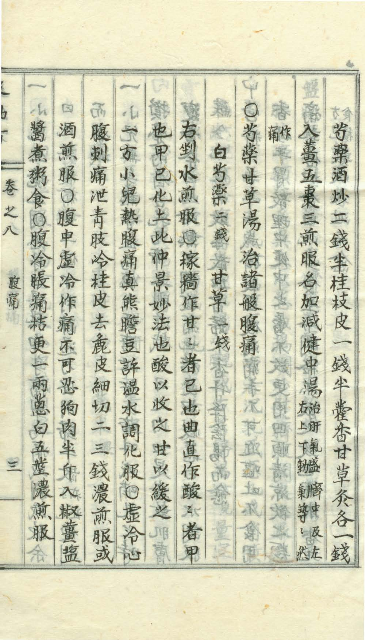 芍藥酒炒二錢半桂枝皮一錢半藿香甘草灸各一錢
入薑五棗三煎服名加減健中湯治肝氣盛臍中及左右上下動氣等〻然
作痛
〇芍藥甘草湯治諸般腹痛
白芍藥二錢甘草一錢
右剉水煎服〇稼穡作甘〻者己也曲直作酸〻者甲
也甲己化土此仲景妙法也酸以收之甘以緩之
一方小兒熱腹痛真熊膽豆許温水調化服〇虛冷心
腹刺痛泄青肢冷桂皮去麁皮細切二三錢濃煎服或
酒煎服〇腹中虛冷作痛不可忍狗肉半斤入椒薑鹽
醬煮粥食〇腹冷脹痛桔更一兩蔥白五莖濃煎服
卷之八
腹痛
三